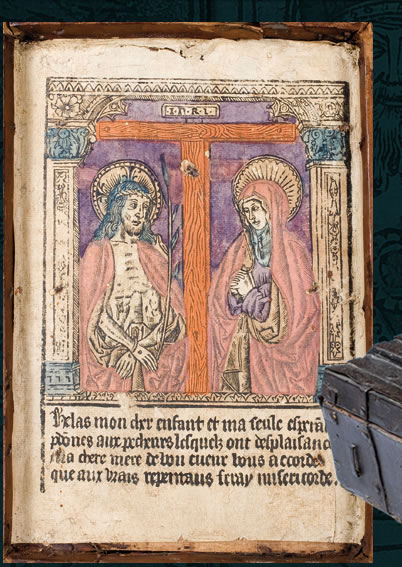 I.N.R.I.
Helas mon cher enfant et ma seule
pdones aux pecheurs lesquelz ont desplaisanc
ma chere mere de bon cueur vous accorde
que aux vrais repentans seray misericorde